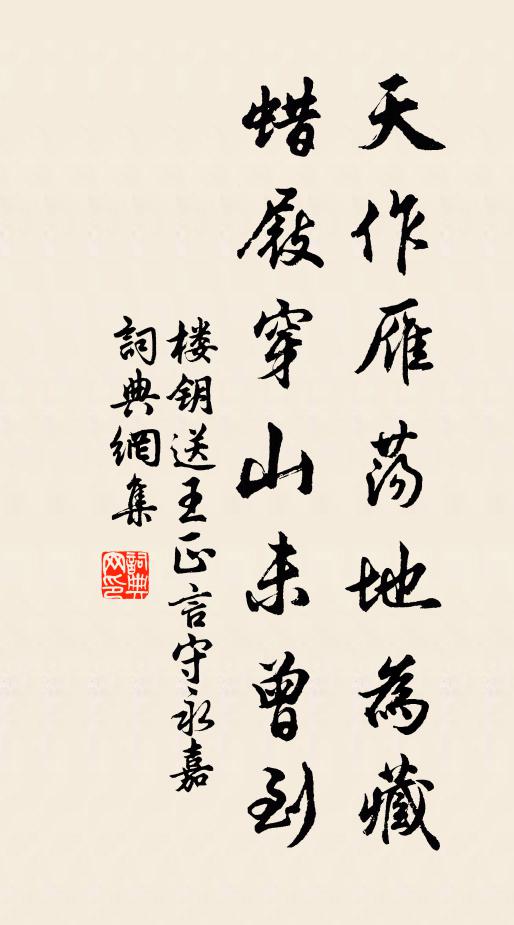 天作雁荡地為藏
蜡屐穿山未曾到
楼钥送王正言守永嘉
詞典網集
詞典
网印